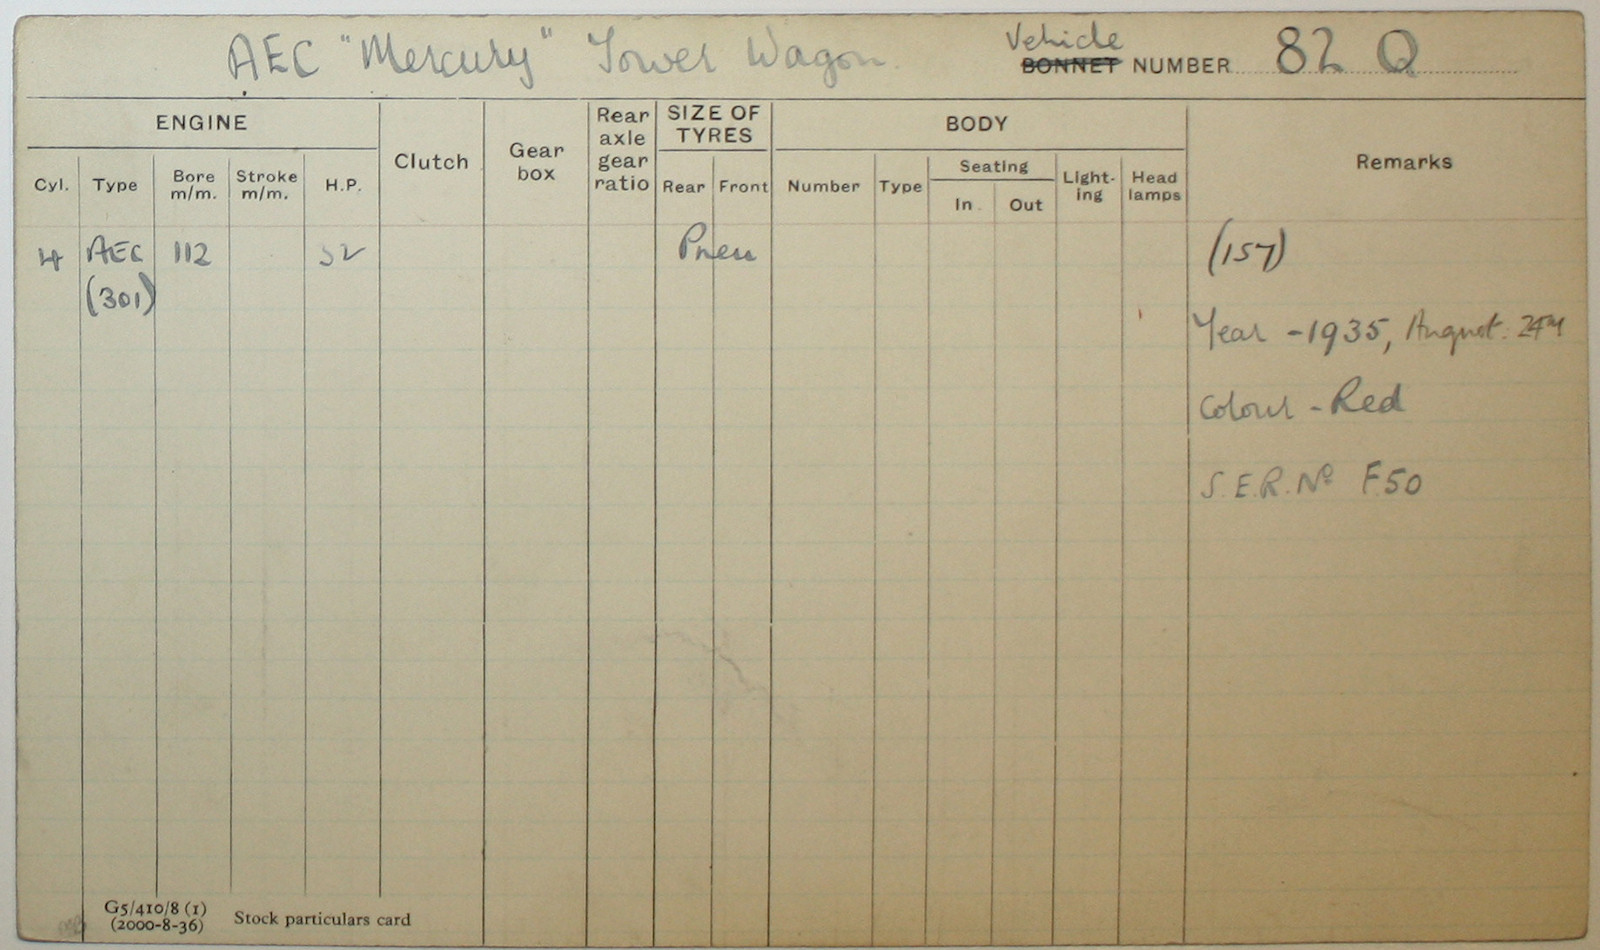 AEC "Mercury" Tower Wagon.
Vehicle
BONNET NUMBER 82 Q
ENGINE
Clutch
Gear box
Rear axle gear ratio
SIZE OF TYRES
BODY
Remarks
Cyl. Type Bore m/m. Stroke m/m. H.P.
Rear Front
Number Type Seating In Out Light-ing Head lamps
4 AEC 112 Pneu (157)
(301)
Year - 1935, August. 24TH
Colour - Red
S.E.R. No F.50
G5/410/8 (1)
(2000-8-36) Stock particulars card